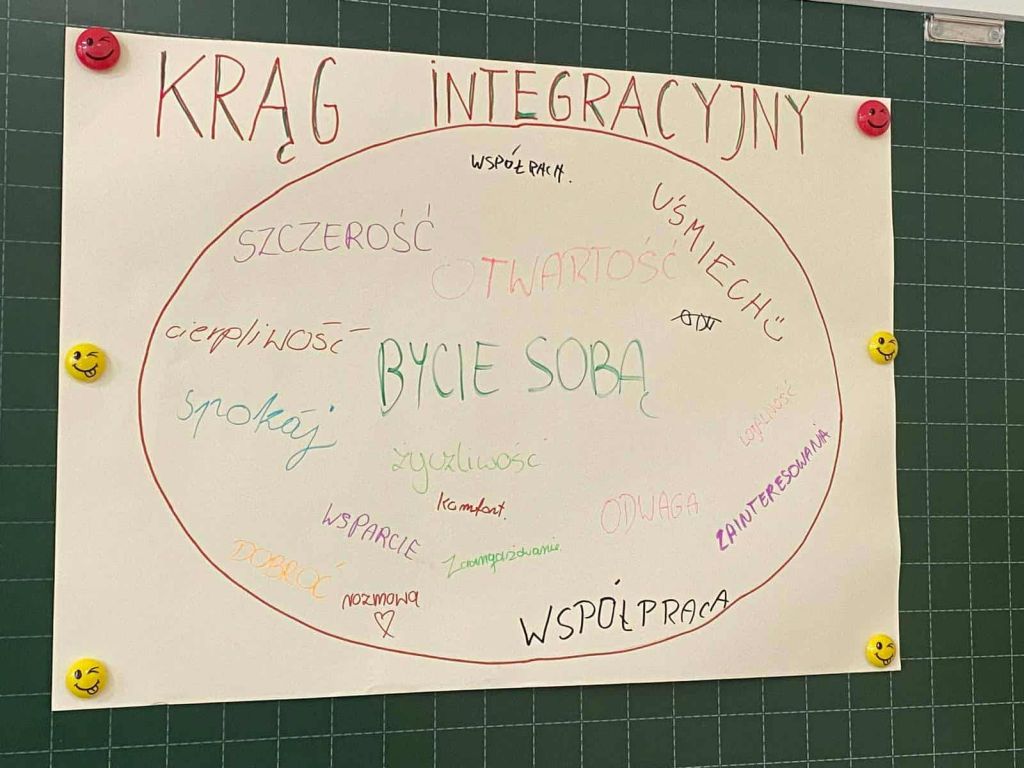 KRĄG INTEGRACYJNY
WSPÓŁPRACA.
UŚMIECH
SZCZEROŚĆ
OTWARTOŚĆ
cierpliwość
BYCIE SOBĄ
spokój
LOJALNOŚĆ
życzliwość
ZAINTERESOWANIA
komfort.
ODWAGA
WSPARCIE
Zaangażowanie.
DOBROĆ
rozmowa
WSPÓŁPRACA